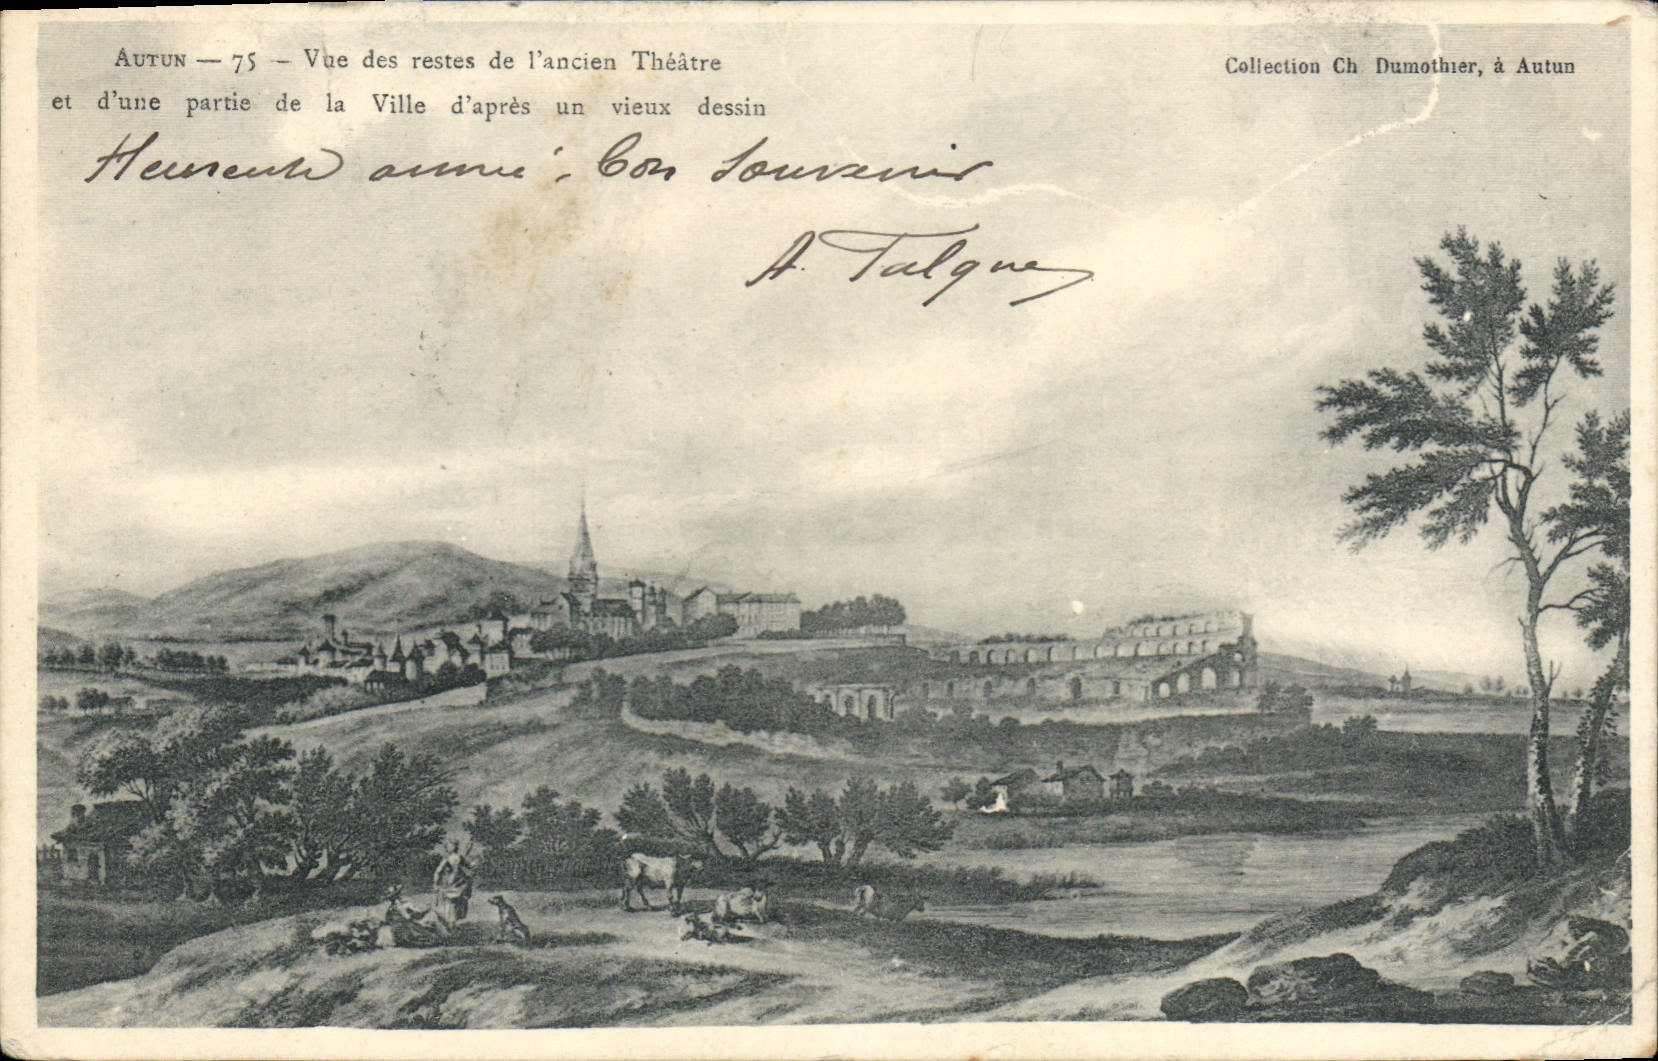 AUTUN — 75 — Vue des restes de l'ancien Théâtre
et d'une partie de la Ville d'après un vieux dessin
Collection Ch Dumothier, à Autun
Heureuse année, bon souvenir
A. Talque